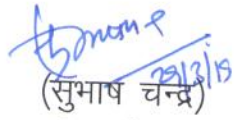 29/3/19
(सुभाष चन्द्र)